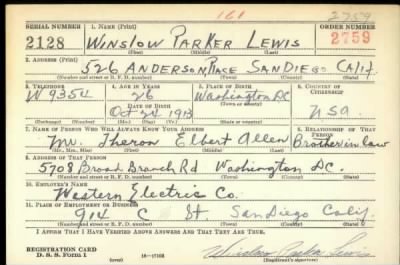 161 2759
SERIAL NUMBER 1. NAME (Print) ORDER NUMBER
2128 WINSLOW PARKER LEWIS 2759
(First) (Middle) (Last)
2. ADDRESS (Print)
526 ANDERSON PLACE SAN DIEGO CALIF.
(Number and street or R. F. D. number) (Town) (County) (State)
3. TELEPHONE 4. AGE IN YEARS 5. PLACE OF BIRTH 6. COUNTRY OF CITIZENSHIP
W 9354 26 Washington DC
DATE OF BIRTH (Town or county)
Oct 24 1913 USA
(Exchange) (No.) (Mo.) (Day) (Yr.) (State or country)
7. NAME OF PERSON WHO WILL ALWAYS KNOW YOUR ADDRESS 8. RELATIONSHIP OF THAT PERSON
Mr. Theron Elbert Allen Brother in law
(Mr., Mrs., Miss) (First) (Middle) (Last)
9. ADDRESS OF THAT PERSON
5708 Broad Branch Rd Washington DC.
(Number and street or R. F. D. number) (Town) (County) (State)
10. EMPLOYER'S NAME
Western Electric Co.
11. PLACE OF EMPLOYMENT OR BUSINESS
914 C St. San Diego Calif.
(Number and street or R. F. D. number) (Town) (County) (State)
I AFFIRM THAT I HAVE VERIFIED ABOVE ANSWERS AND THAT THEY ARE TRUE.
REGISTRATION CARD
D. S. S. Form 1 16—17105 Winslow Parker Lewis
(Registrant's signature)